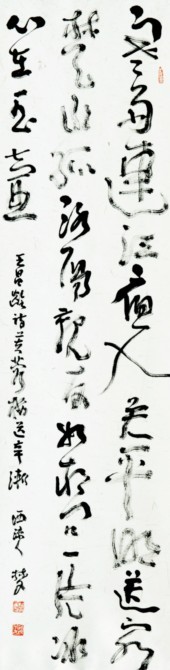 寒雨連江夜入吳平明送客
楚山孤洛陽親友如相問一片冰
心在玉壺
王昌齡詩芙蓉樓送辛漸